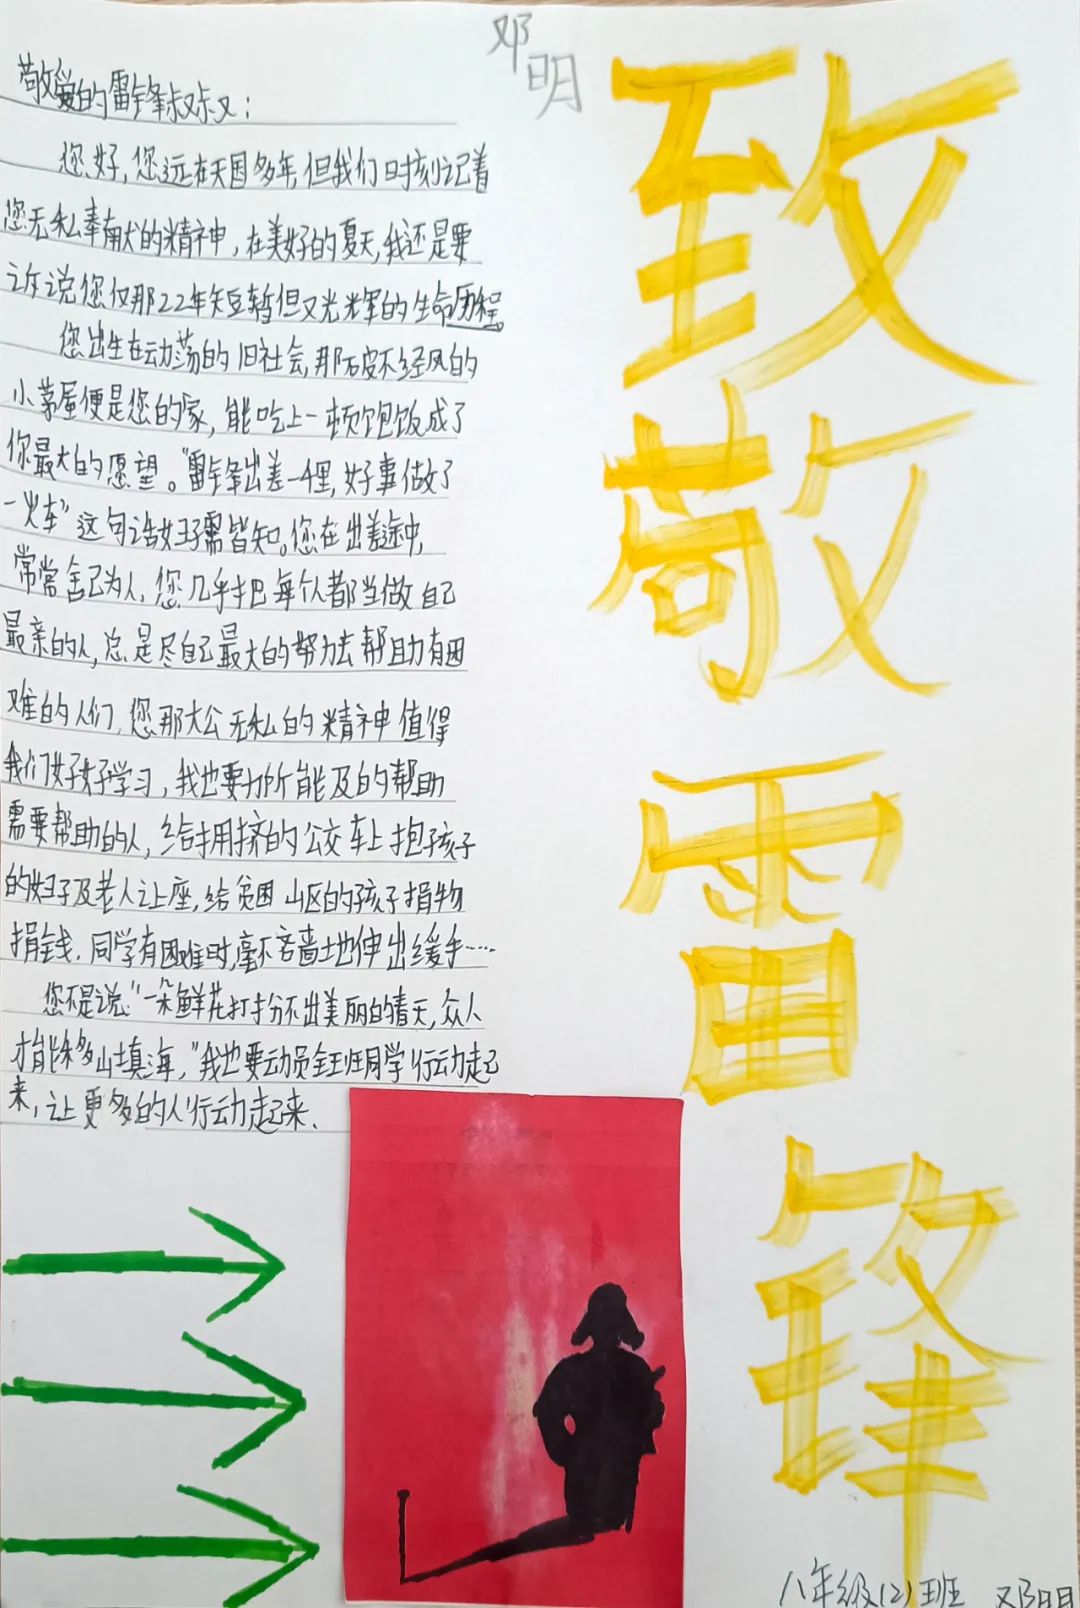 邓明
致敬雷锋
敬爱的雷锋叔叔：
您好，您远在天国多年，但我们时刻记着
您无私奉献的精神，在美好的夏天，我还是要
诉说您仅那22年短暂但又光辉的生命历程。
您出生在动荡的旧社会，那破不经风的
小茅屋便是您的家，能吃上一顿饱饭成了
你最大的愿望。“雷锋出差一千里，好事做了
一火车”这句话妇孺皆知。您在出差途中，
常常舍己为人，您几乎把每个人都当做自己
最亲的人，总是尽自己最大的努力去帮助有困
难的人们，您那大公无私的精神值得
我们好好学习，我也要力所能及的帮助
需要帮助的人，给拥挤的公交车上抱孩子
的妇子及老人让座，给贫困山区的孩子捐物
捐钱．同学有困难时，毫不吝啬地伸出缓手……
您不是说：“一朵鲜花打扮不出美丽的春天，众人
才能移山填海，”我也要动员全班同学行动起
来，让更多的人行动起来．
八年级(2)班 邓明